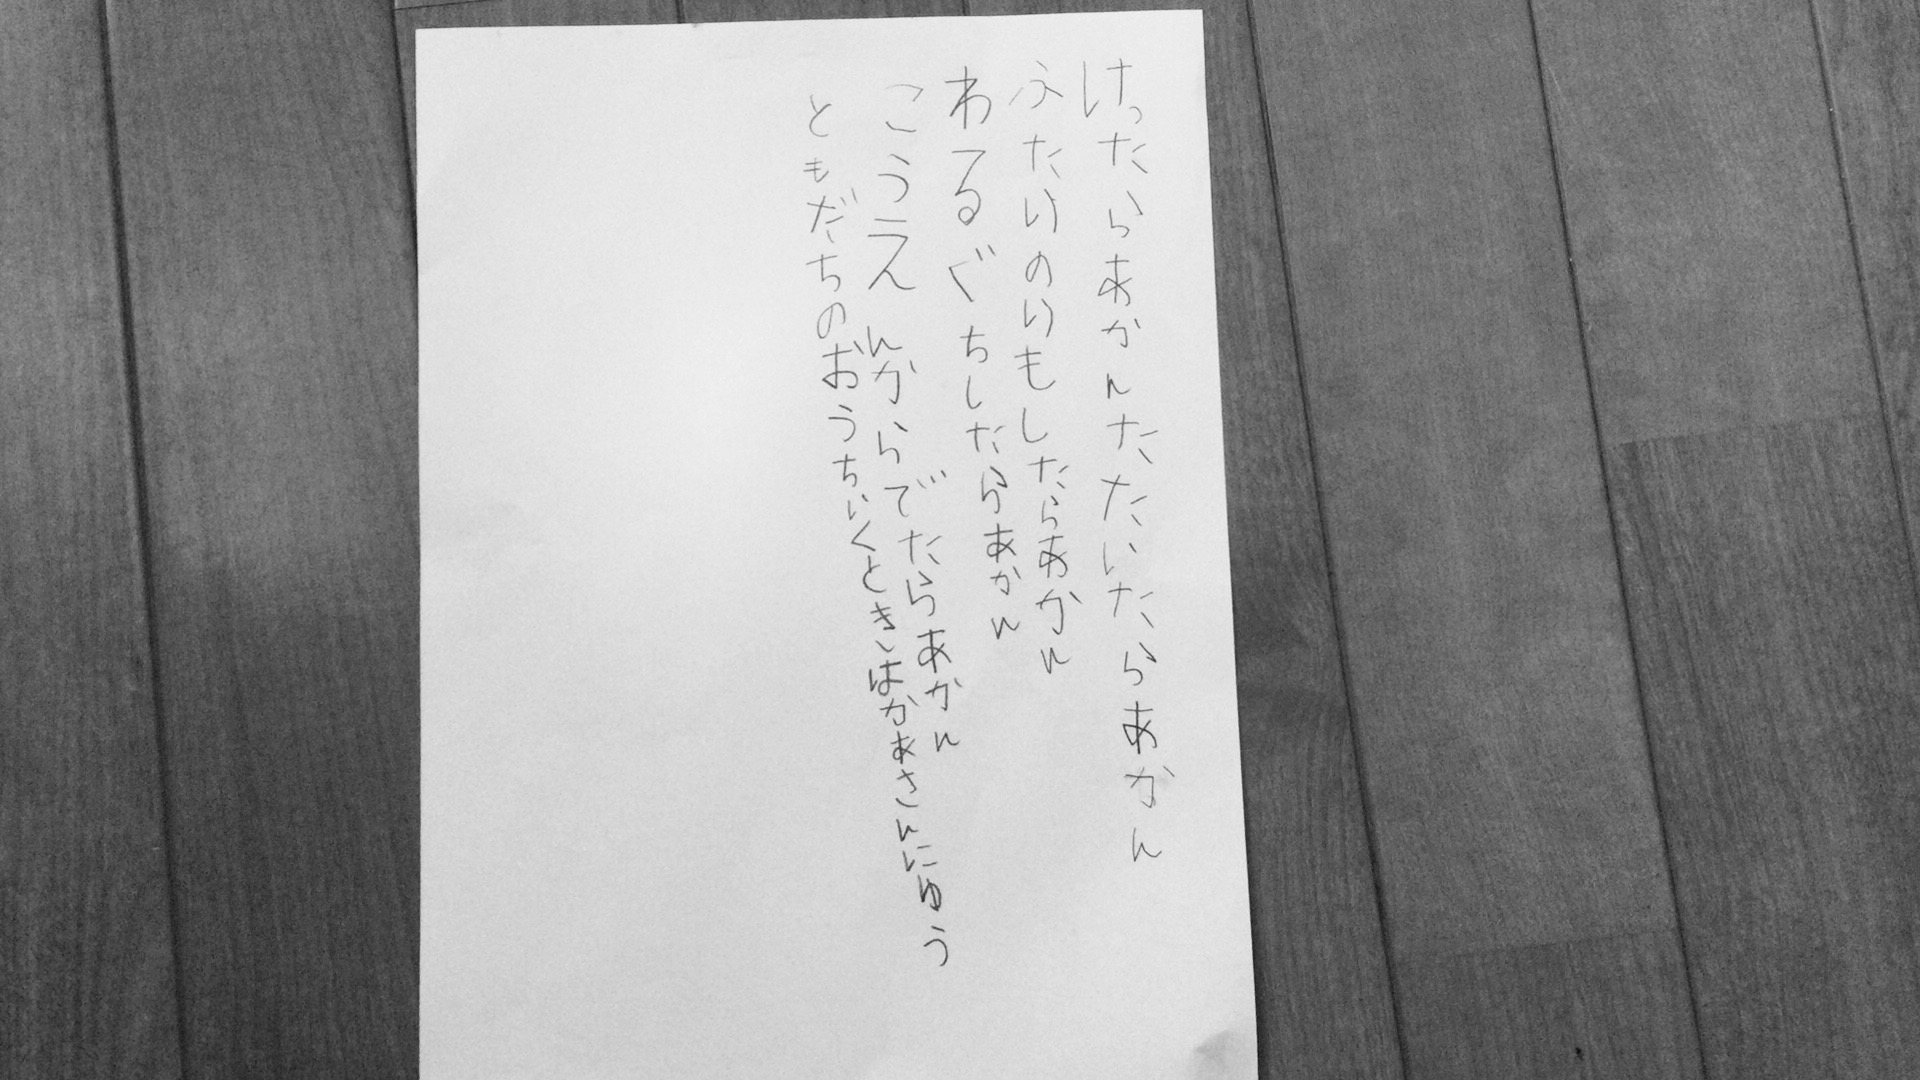 けったらあかんたたいたらあかん
ふたりのりもしたらあかん
わるぐちしたらあかん
こうえんからでたらあかん
ともだちのおうちいくときはかあさんにゆう